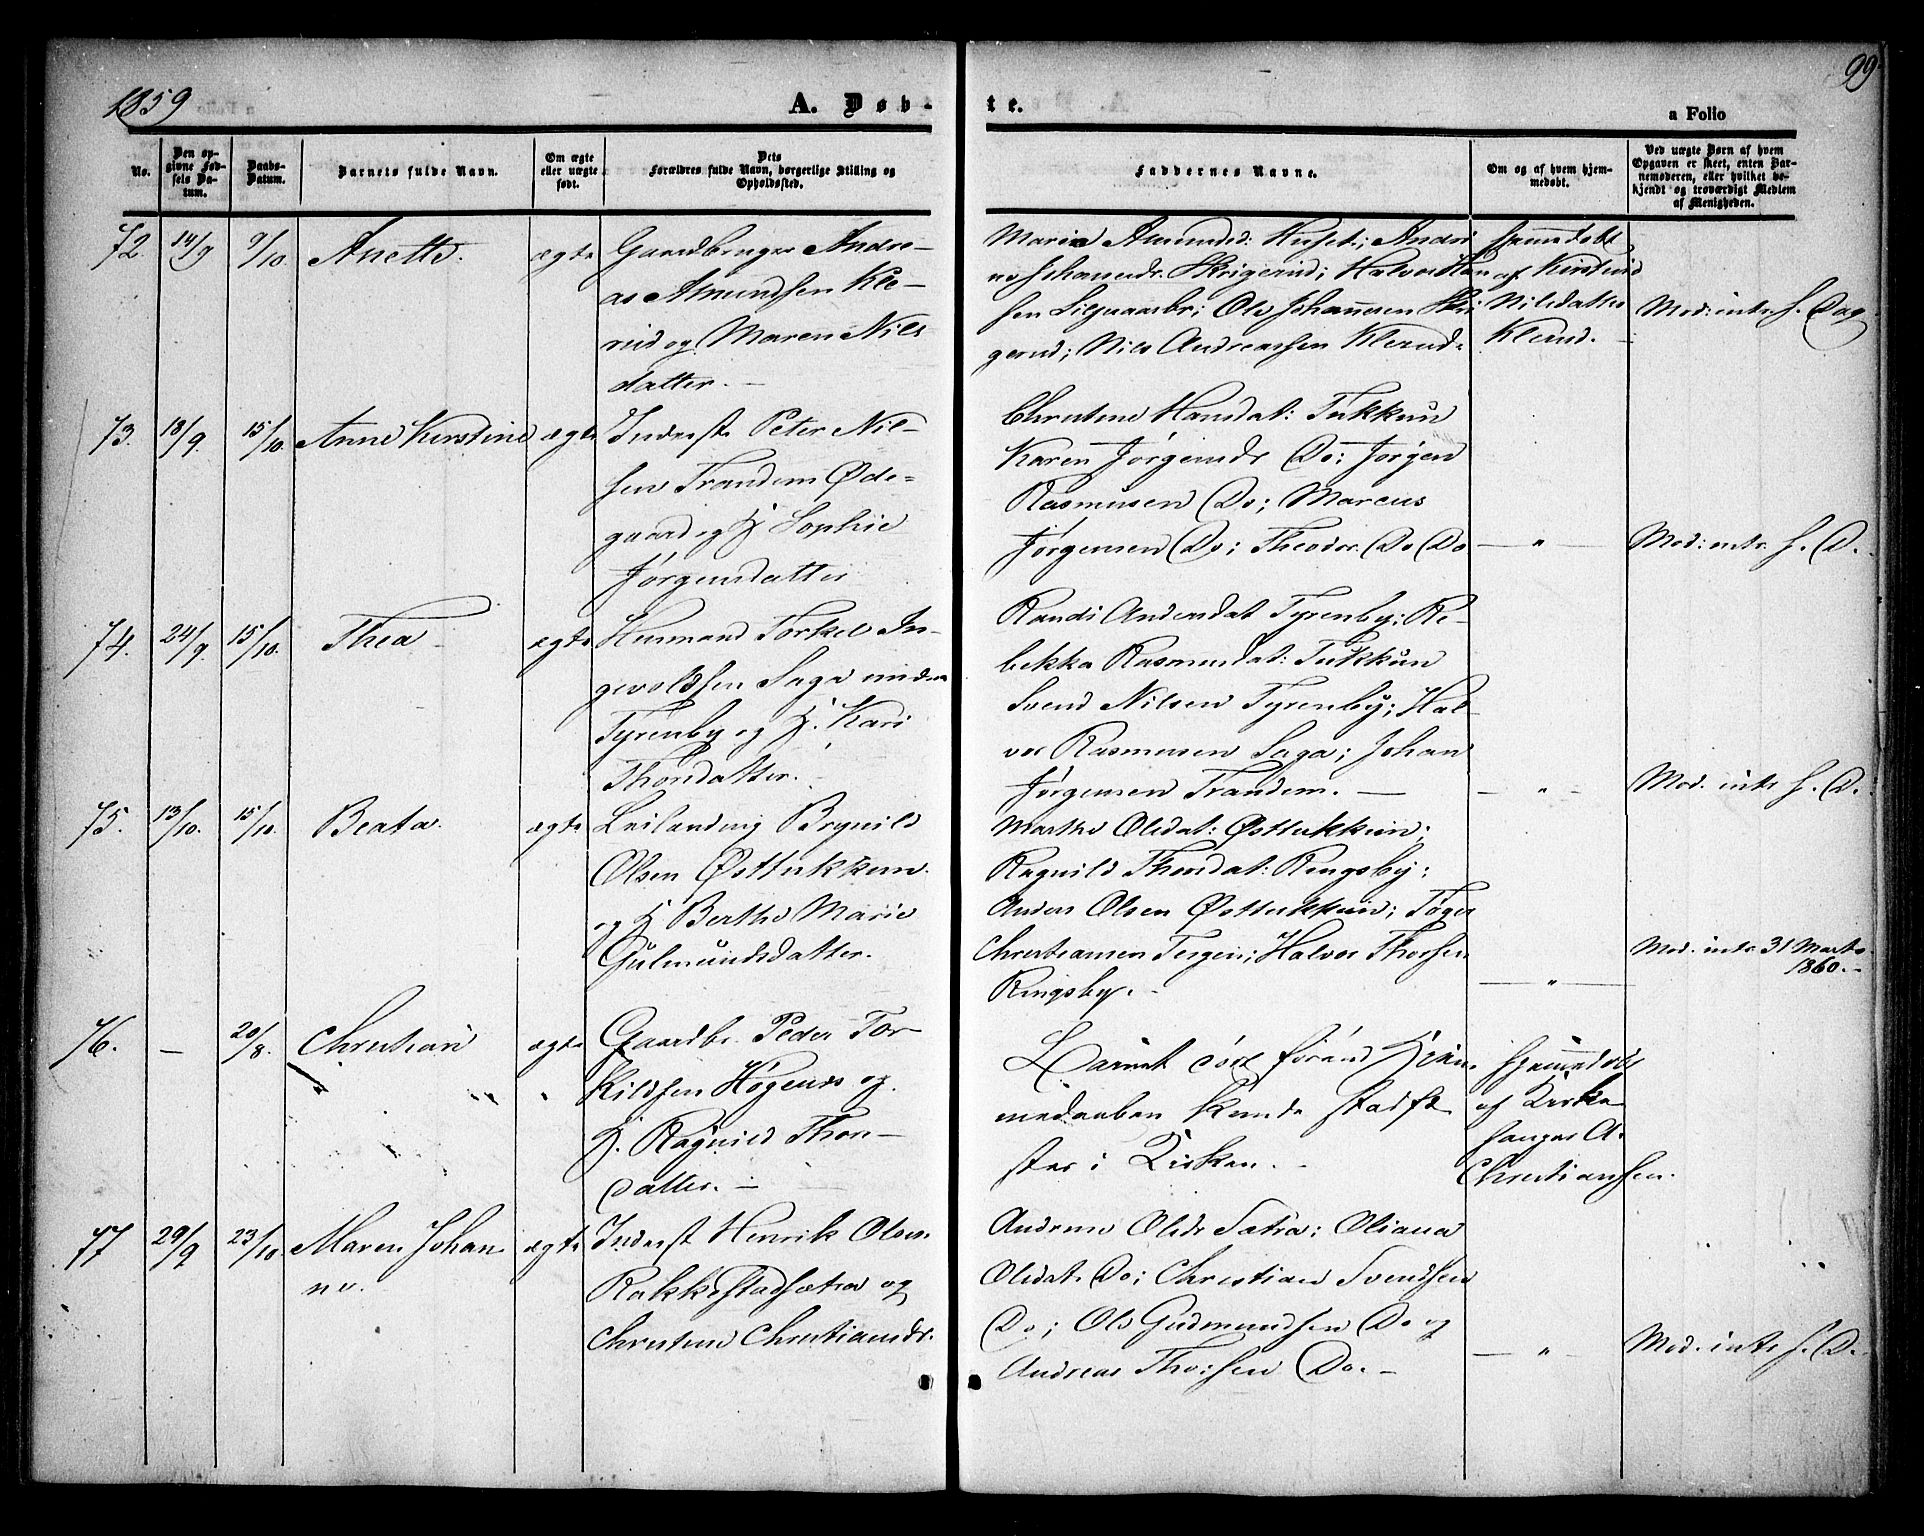 1859
A. Døb-
te.
99
a Folio
No.
Den op-
givne Fød-
sels Da-
tum.
Daabs-
Datum.
Barnets fulde Navn.
Om ægte
eller uægte
født.
Dets
Forældres fulde Navn, borgerlige Stilling og
Opholdssted.
Faddernes Navne.
Om og af hvem hjem-
medøbt.
Ved uægte Børn af hvem
Opgaven er skeet, enten Bar-
nemoderen, eller hvilket be-
kjendt og troværdigt Medlem
af Menigheden.
72. 14/9 9/10. Anette. ægte
Gaardbruger Andre-
as Amundsen Kle-
rud og Maren Nils
datter. -
Maria Amundsd: Huset; Andri
ne Johannesdr. Skrigerud; Halvor Han
sen Liljuaasbr; Ole Johannesen Skri
gerud; Nils Andreassen Klerud.
Hjemmedøbt
af Kirstine
Nilsdatter
Klerud.
Mod: intr. s. Dag
73. 18/9. 15/10. Anne Kirstine ægte
Inderste Peter Nil-
sen Trandem Øde-
gaard og H. Sophie
Jørgensdatter
Christine Hansdat: Tukkun
Karen Jørgensdr Do; Jørgen
Rasmusen Do; Marcus
Jørgensen Do; Theodor Do Do
— " —
Mod: intr. s. D.
74. 24/9. 15/10. Thea ægte
Husmand Torkel In-
gevoldsen Saga under
Tyrenby og H. Kari
Thorsdatter.
Randi Andersdat Tyrenby; Re-
bekka Rasmusdat: Tukkun
Svend Nilsen Tyrenby; Hal-
vor Rasmusen Saga; Johan
Jørgensen Trandem. —
— " —
Mod. intr s. D.
75. 13/10. 15/10. Beata. ægte
Leilænding Brynild
Olsen Østtukkun.
og H Berthe Marie
Gulmundsdatter.
Marthe Olsdat: Østtukkun;
Ragnild Thorsdat: Ringsby;
Anders Olsen Østtukkun; Tøger
Christiansen Tergen; Halvor Thorsen
Ringsby. -
— " —
Mod. intr. 31 Marts
1860. -
76. — 20/8. Christian ægte
Gaardbr. Peder Tor-
kildsen Høgenes og
H. Ragnild Thors-
datter. —
Barnet døde førend Hjem-
medaaben kunde stadfæ
stes i Kirken. -
Hjemmedøbt
af Kirke
sanger A.
Christiansen.
77 29/9 23/10. Maren Johan-
ne. ægte
Inderst Henrik Olsen
Rakkestadsætra og
Christine Christiansdr.
Andrine Olsdr Sætra; Oliana
Olsdat. Do; Christian Svendsen
Do; Ole Gudmundsen Do og
Andreas Thorsen Do. -
— " —
Mod. intr s. D.